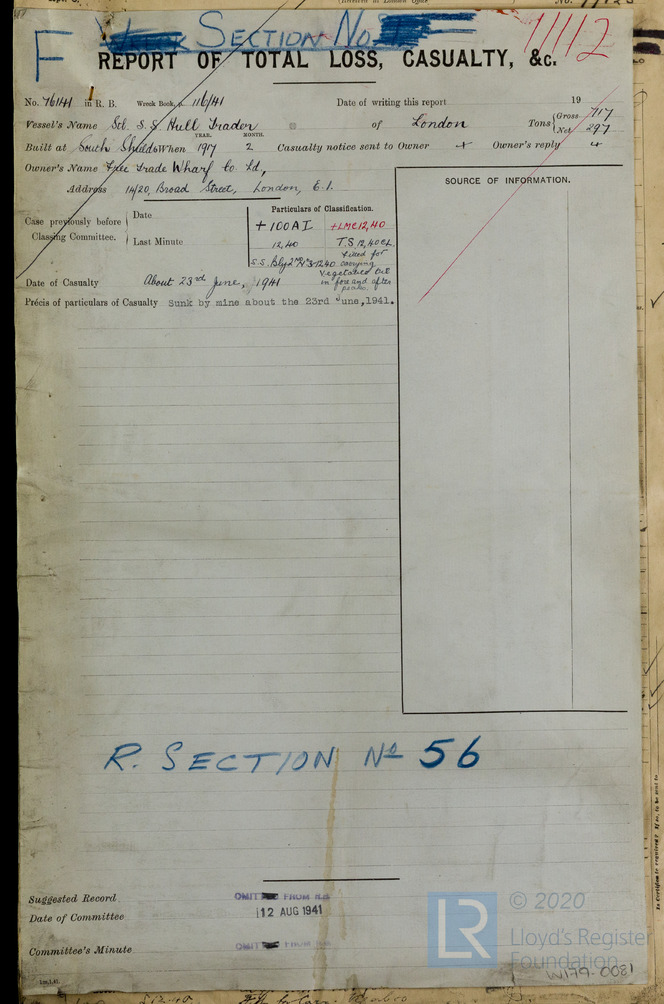 F SECTION No
1112
REPORT OF TOTAL LOSS, CASUALTY, &c.
No. 76141 in R. B. Wreck Book, p. 116/41 Date of writing this report 19
Vessel's Name Scl. S.S. Hull Trader of London Tons Gross 717
Net 297
YEAR. MONTH.
Built at South Shields When 1917 2 Casualty notice sent to Owner + Owner's reply
Owner's Name Free Trade Wharf Co. Ld,
Address 14/20, Broad Street, London, E.1.
SOURCE OF INFORMATION.
Particulars of Classification.
Case previously before Classing Committee.
Date
Last Minute
+100A1 +LMC12,40
12,40 T.S. 12,40 CL.
fitted for
S.S. Bly 2nd No3-12,40 carrying
Vegetable oil
in fore and after
peaks.
Date of Casualty About 23rd June, 1941
Précis of particulars of Casualty Sunk by mine about the 23rd June, 1941.
R. SECTION No 56
Suggested Record
OMITTED FROM R.B.
Date of Committee
12 AUG 1941
Committee's Minute
OMITTED FROM
LR
© 2020
Lloyd's Register
Foundation
W179-0081